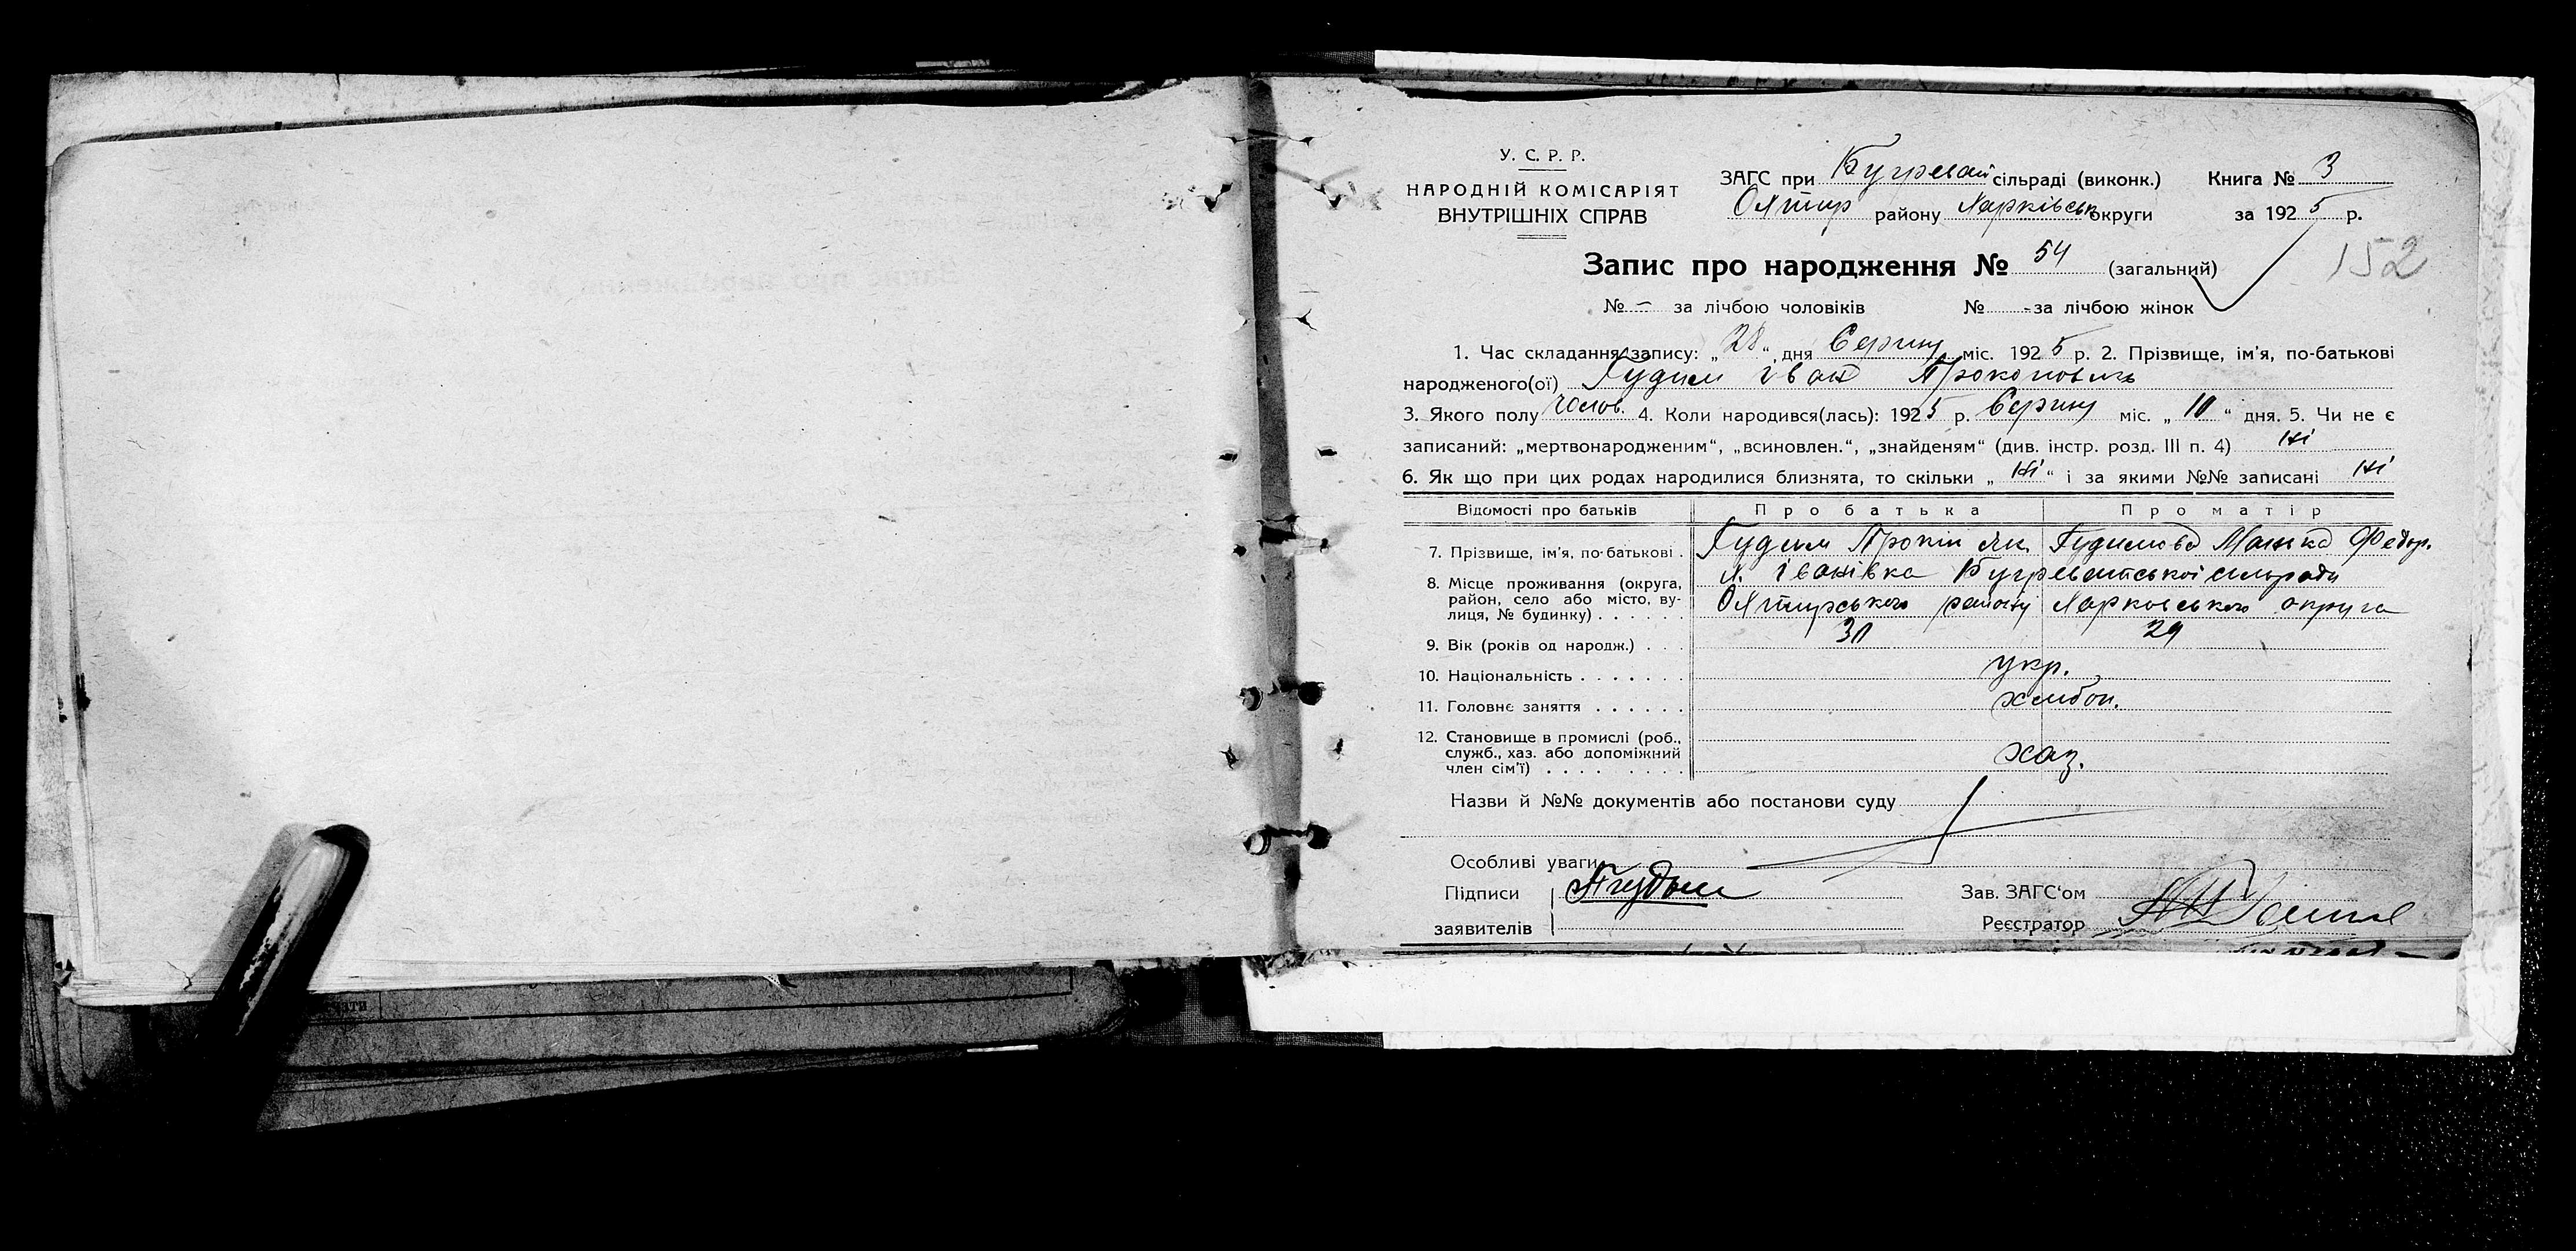 У. С. Р. Р.
НАРОДНІЙ КОМІСАРІЯТ
ВНУТРІШНІХ СПРАВ
ЗАГС при сільраді (виконк.) Книга № 3
Охтир району Харківськ округи за 1925 р.
152
Запис про народження № 54 (загальний)
№ – за лічбою чоловіків № - за лічбою жінок
1. Час складання запису: „28“ дня Серпня міс. 1925 р. 2. Прізвище, ім'я, по-батькові
народженого(ої) Гудим Іван Прокопович
3. Якого полу чолов. 4. Коли народився(лась): 1925 р. Серпня міс. „10“ дня. 5. Чи не є
записаний: „мертвонародженим“, „всиновлен.“, „знайденям“ (див. інстр. розд. III п. 4) ні
6. Як що при цих родах народилися близнята, то скільки „ні“ і за якими №№ записані ні
Відомості про батьків Про батька Про матір
7. Прізвище, ім'я, по-батькові . Гудим Прокіп Як. Гудимова Федор.
8. Місце проживання (округа, х. Іванівка сільради
район, село або місто, ву- Охтирського району Харковського округа
лиця, № будинку) . . . . . .
9. Вік (років од народж.) . . . 30 29
10. Національність . . . . . . . укр.
11. Головне заняття . . . . . . хлібоп.
12. Становище в промислі (роб.,
служб., хаз. або допоміжний хаз.
член сім'ї) . . . . . . . .
Назви й №№ документів або постанови суду
Особливі уваги
Підписи Зав. ЗАГС'ом
заявителів Реєстратор